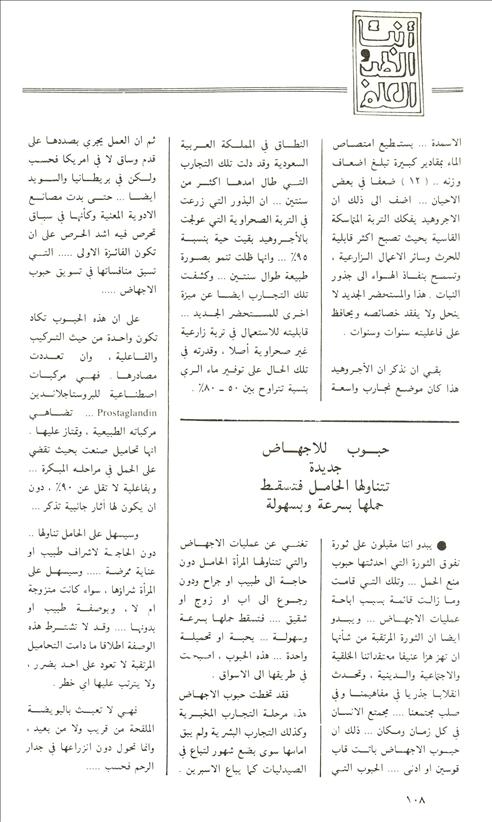 أنت
والطب
والعلم
الاسمدة ... يستطيع امتصاص
الماء بمقادير كبيرة تبلغ اضعاف
وزنه .. (١٢) ضعفا في بعض
الاحيان ... اضف الى ذلك ان
الاجروهيد يفكك التربة المتماسكة
القاسية بحيث تصبح اكثر قابلية
للحرث وسائر الاعمال الزراعية ،
وتسمح بنفاذ الهواء الى جذور
النبات . هذا والمستحضر الجديد لا
ينحل ولا يفقد خصائصه ويحافظ
على فاعليته سنوات وسنوات .
بقي ان نذكر ان الأجروهيد
هذا كان موضع تجارب واسعة
النطاق في المملكة العربية
السعودية وقد دلت تلك التجارب
التي طال امدها اكثر من
سنتين ... ان البذور التي زرعت
في التربة الصحراوية التي عولجت
بالأجروهيد بقيت حية بنسبة
٩٥٪ ... وانها ظلت تنمو بصورة
طبيعية طوال سنتين ... وكشفت
تلك التجارب ايضا عن ميزة
اخرى للمستحضر الجديد ...
قابليته للاستعمال في تربة زارعية
غير صحراوية أصلا ، وقدرته في
تلك الحال على توفير ماء الري
بنسبة تتراوح بين ٥٠ - ٨٠٪ .
حبوب للاجهاض
جديدة
تتناولها الحامل فتسقط
حملها بسرعة وبسهولة
● يبدو اننا مقبلون على ثورة
تفوق الثورة التي احدثتها حبوب
منع الحمل ... وتلك التي قامت
وما زالت قائمة بسبب اباحة
عمليات الاجهاض ... ويبدو
ايضا ان الثورة المرتقبة من شأنها
ان تهز هزا عنيفا معتقداتنا الخلقية
والاجتماعية والدينية ، وتحدث
انقلابا جذريا في مفاهيمنا وفي
صلب مجتمعنا .... مجتمع الانسان
في كل زمان ومكان ... ذلك ان
حبوب الاجهاض باتت قاب
قوسين او ادنى .... الحبوب التي
تغني عن عمليات الاجهاض
والتي تتناولها المرأة الحامل دون
حاجة الى طبيب او جراح ودون
رجوع الى اب او زوج او
شقيق .... فتسقط حملها بسرعة
وسهولة ... بحبة او تحميلة
واحدة ... هذه الحبوب ، اصبحت
في طريقها الى الاسواق .
فقد تخطت حبوب الاجهاض
هذه مرحلة التجارب المخبرية
وكذلك التجارب البشرية ولم يبق
امامها سوى بضع شهور لتباع في
الصيدليات كما يباع الاسبرين .
ثم ان العمل يجري بصددها على
قدم وساق لا في امريكا فحسب
ولكن في بريطانيا والسويد
ايضا ... حتى بدت مصانع
الادوية المعنية وكأنها في سباق
تحرص فيه اشد الحرص على ان
تكون الفائزة الاولى ..... التي
تسبق منافساتها في تسويق حبوب
الاجهاض .....
على ان هذه الحبوب تكاد
تكون واحدة من حيث التركيب
والفاعلية ، وان تعددت
مصادرها . فهي مركبات
اصطناعية للبروستاجلاندين
Prostaglandin ... تضاهي
مركباته الطبيعية ، وتمتاز عليها .
انها تحاميل صنعت بحيث تقضي
على الحمل في مراحله المبكرة ...
وبفاعلية لا تقل عن ٩٠٪ ، دون
ان يكون لها أثار جانبية تذكر ...
وسيسهل على الحامل تناولها ..
دون الحاجة لاشراف طبيب او
عناية ممرضة .... وسيسهل على
المرأة شراؤها ، سواء كانت متزوجة
ام لا ، وبوصفة طبيب او
بدونها .... وقد لا تشترط هذه
الوصفة اطلاقا ما دامت التحاميل
المرتقبة لا تعود على احد بضرر ،
ولا يترتب عليها اي خطر .
فهي لا تعبث بالبويضة
الملقحة من قريب ولا من بعيد ،
وانما تحول دون انزراعها في جدار
الرحم فحسب .....
١٠٨